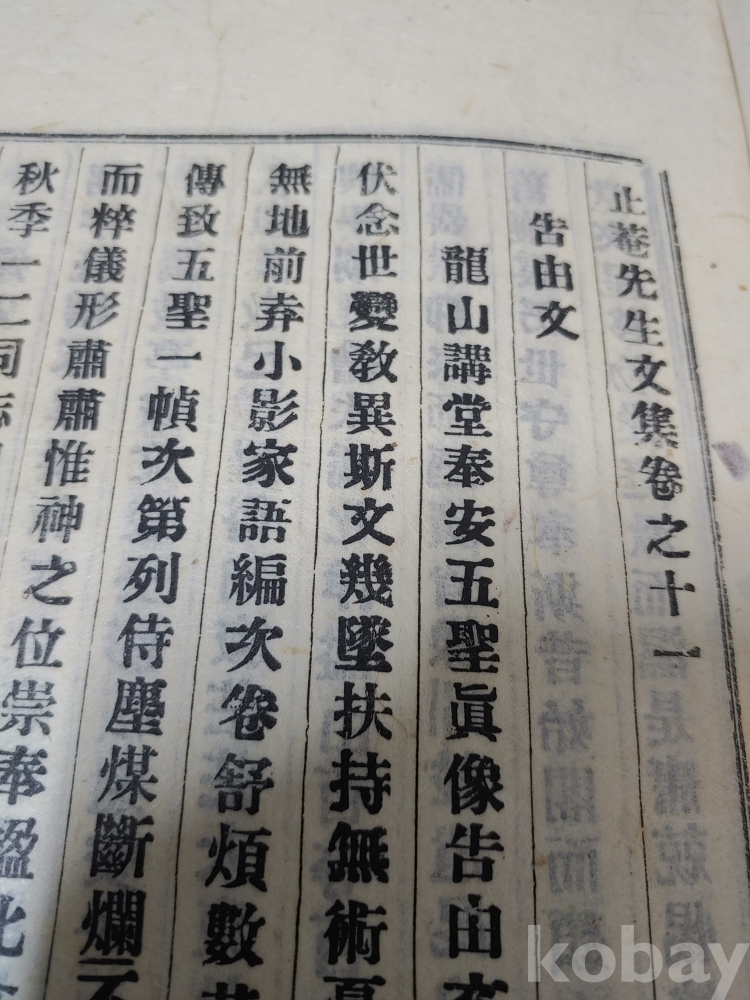 止菴先生文集卷之十一
告由文
龍山講堂奉安五聖眞像告由文
伏念世變敎異斯文幾墜扶持無術
無地前弆小影家語編次卷舒煩數
傳致五聖一幀次第列侍塵煤斷爛不
而粹儀形肅肅惟神之位崇奉
秋季一二同志
kobay